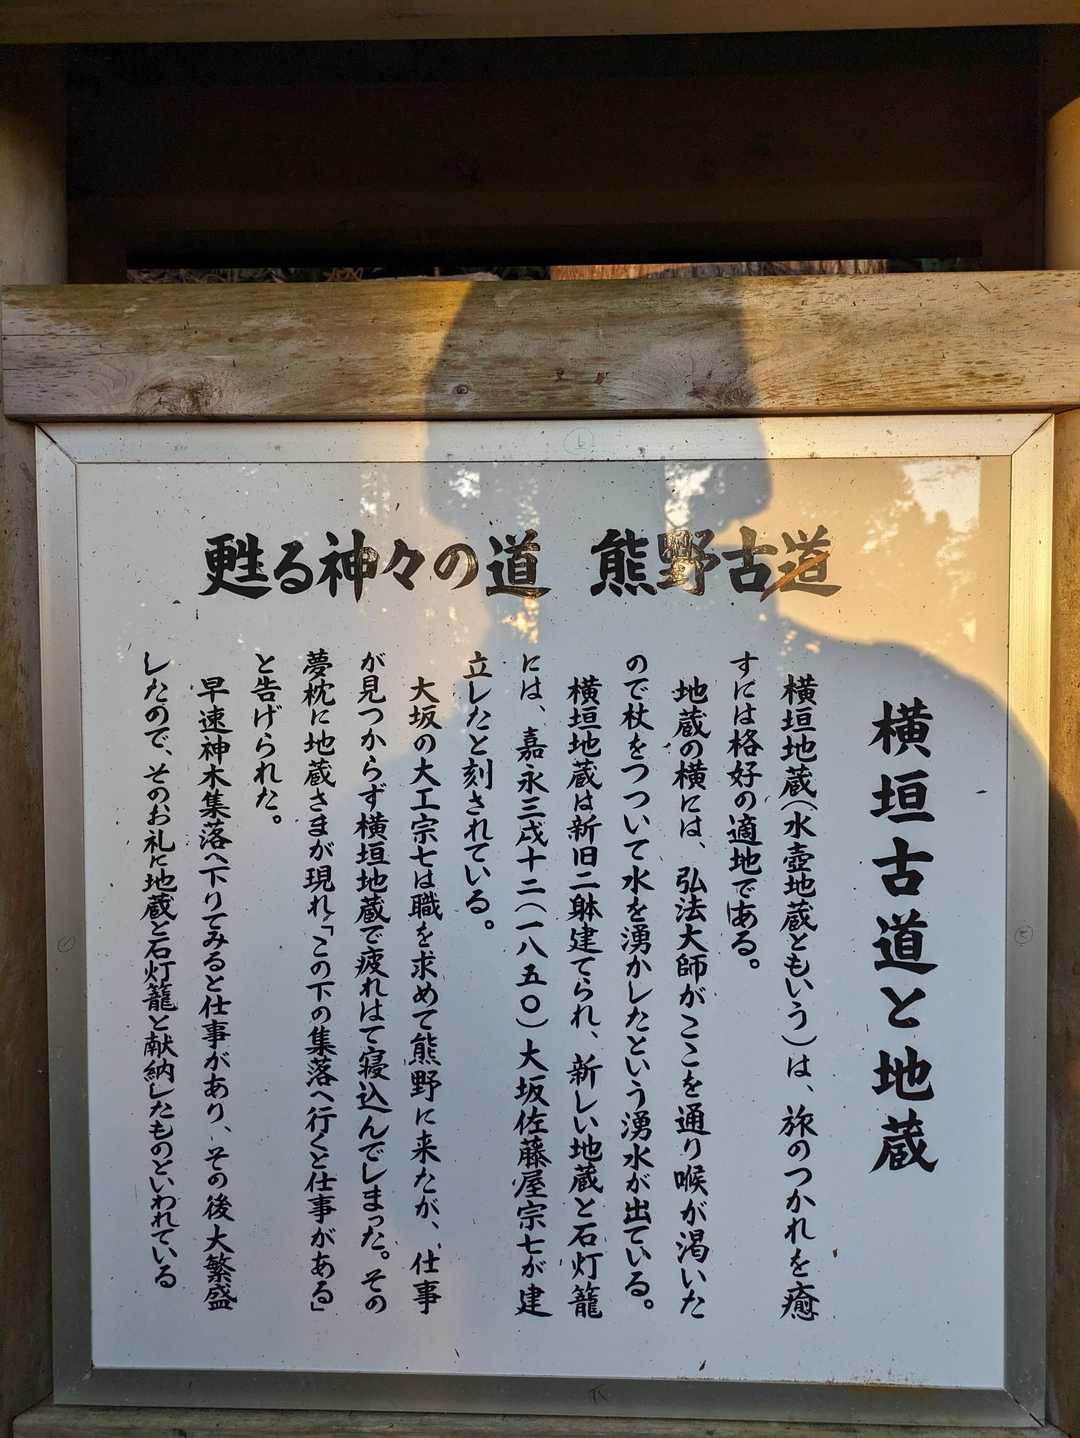 甦る神々の道　熊野古道
横垣古道と地蔵
横垣地蔵（水壺地蔵ともいう）は、旅のつかれを癒
すには格好の適地である。
地蔵の横には、弘法大師がここを通り喉が渇いた
ので杖をつついて水を湧かしたという湧水が出ている。
横垣地蔵は新旧二躰建てられ、新しい地蔵と石灯籠
には、嘉永三戌十二（一八五〇）大坂佐藤屋宗七が建
立したと刻されている。
大坂の大工宗七は職を求めて熊野に来たが、仕事
が見つからず横垣地蔵で疲れはて寝込んでしまった。その
夢枕に地蔵さまが現れ「この下の集落へ行くと仕事がある」
と告げられた。
早速神木集落へ下りてみると仕事があり、その後大繁盛
したので、そのお礼に地蔵と石灯籠と献納したものといわれている